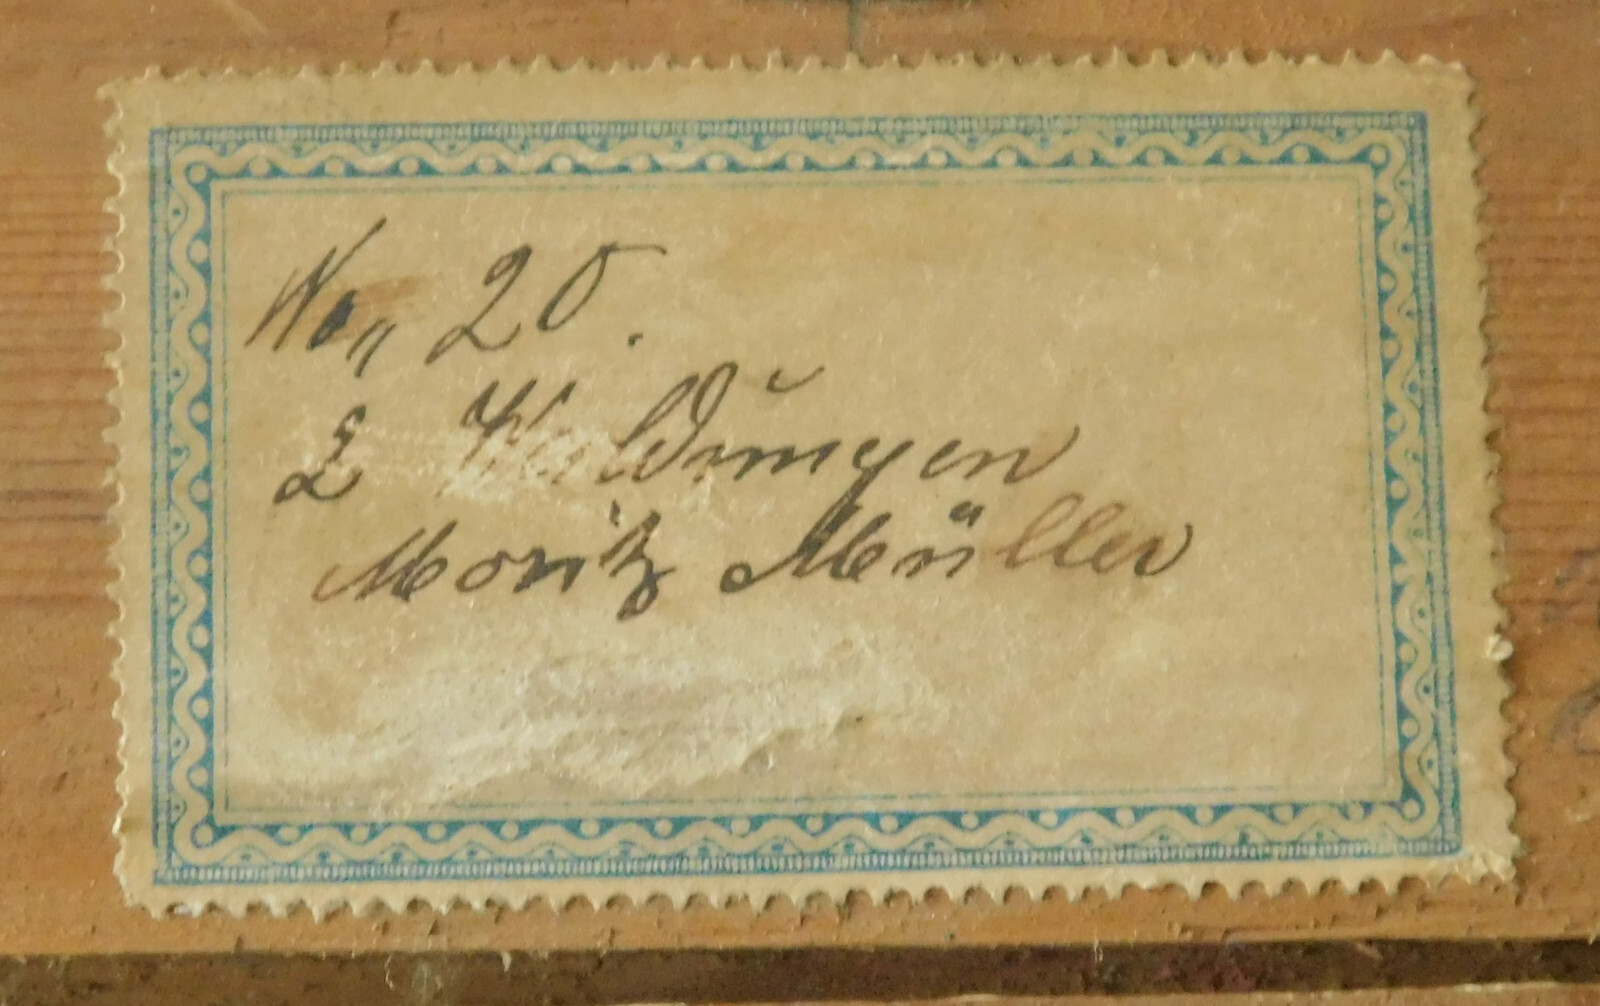 No„ 20.
2 Waldungen
Moritz Müller